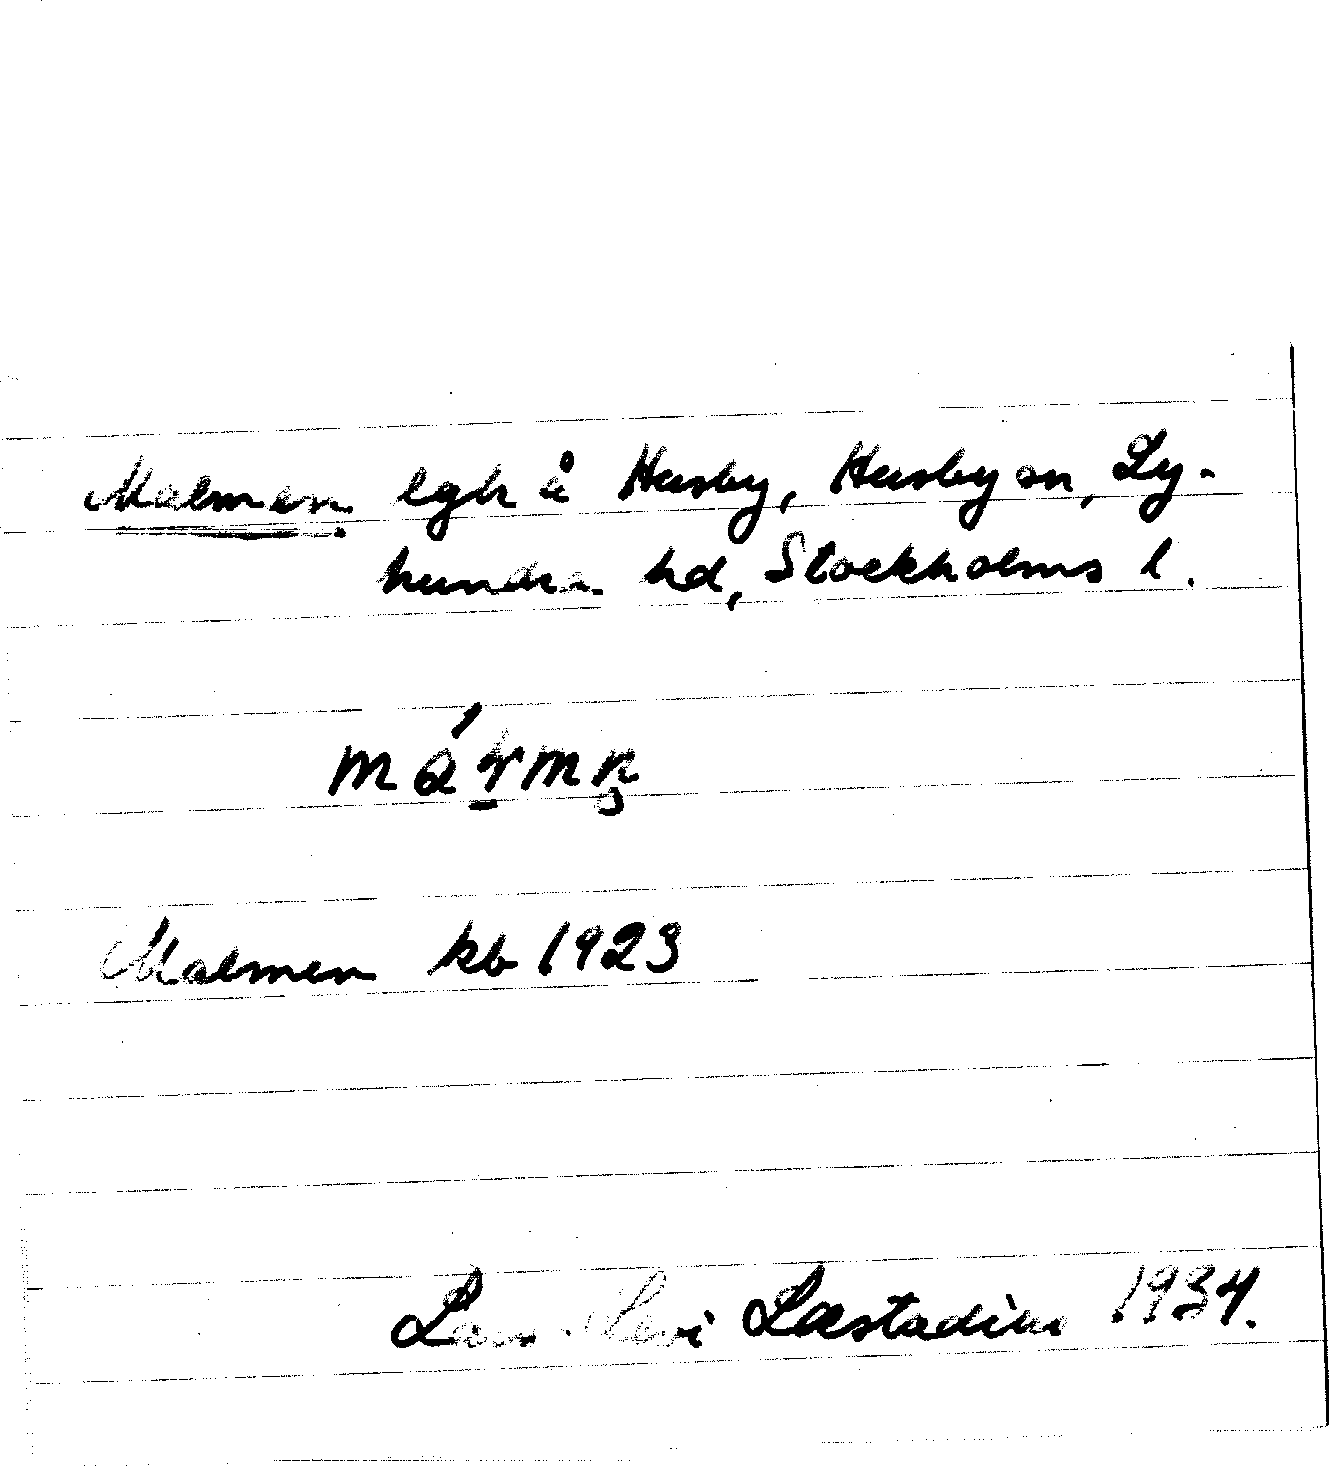 Malmen lgh å Husby, Husby sn, Ly-
hundra hd, Stockholms l.
Malmen kb 1923
Lars Levi Læstadius 1934.